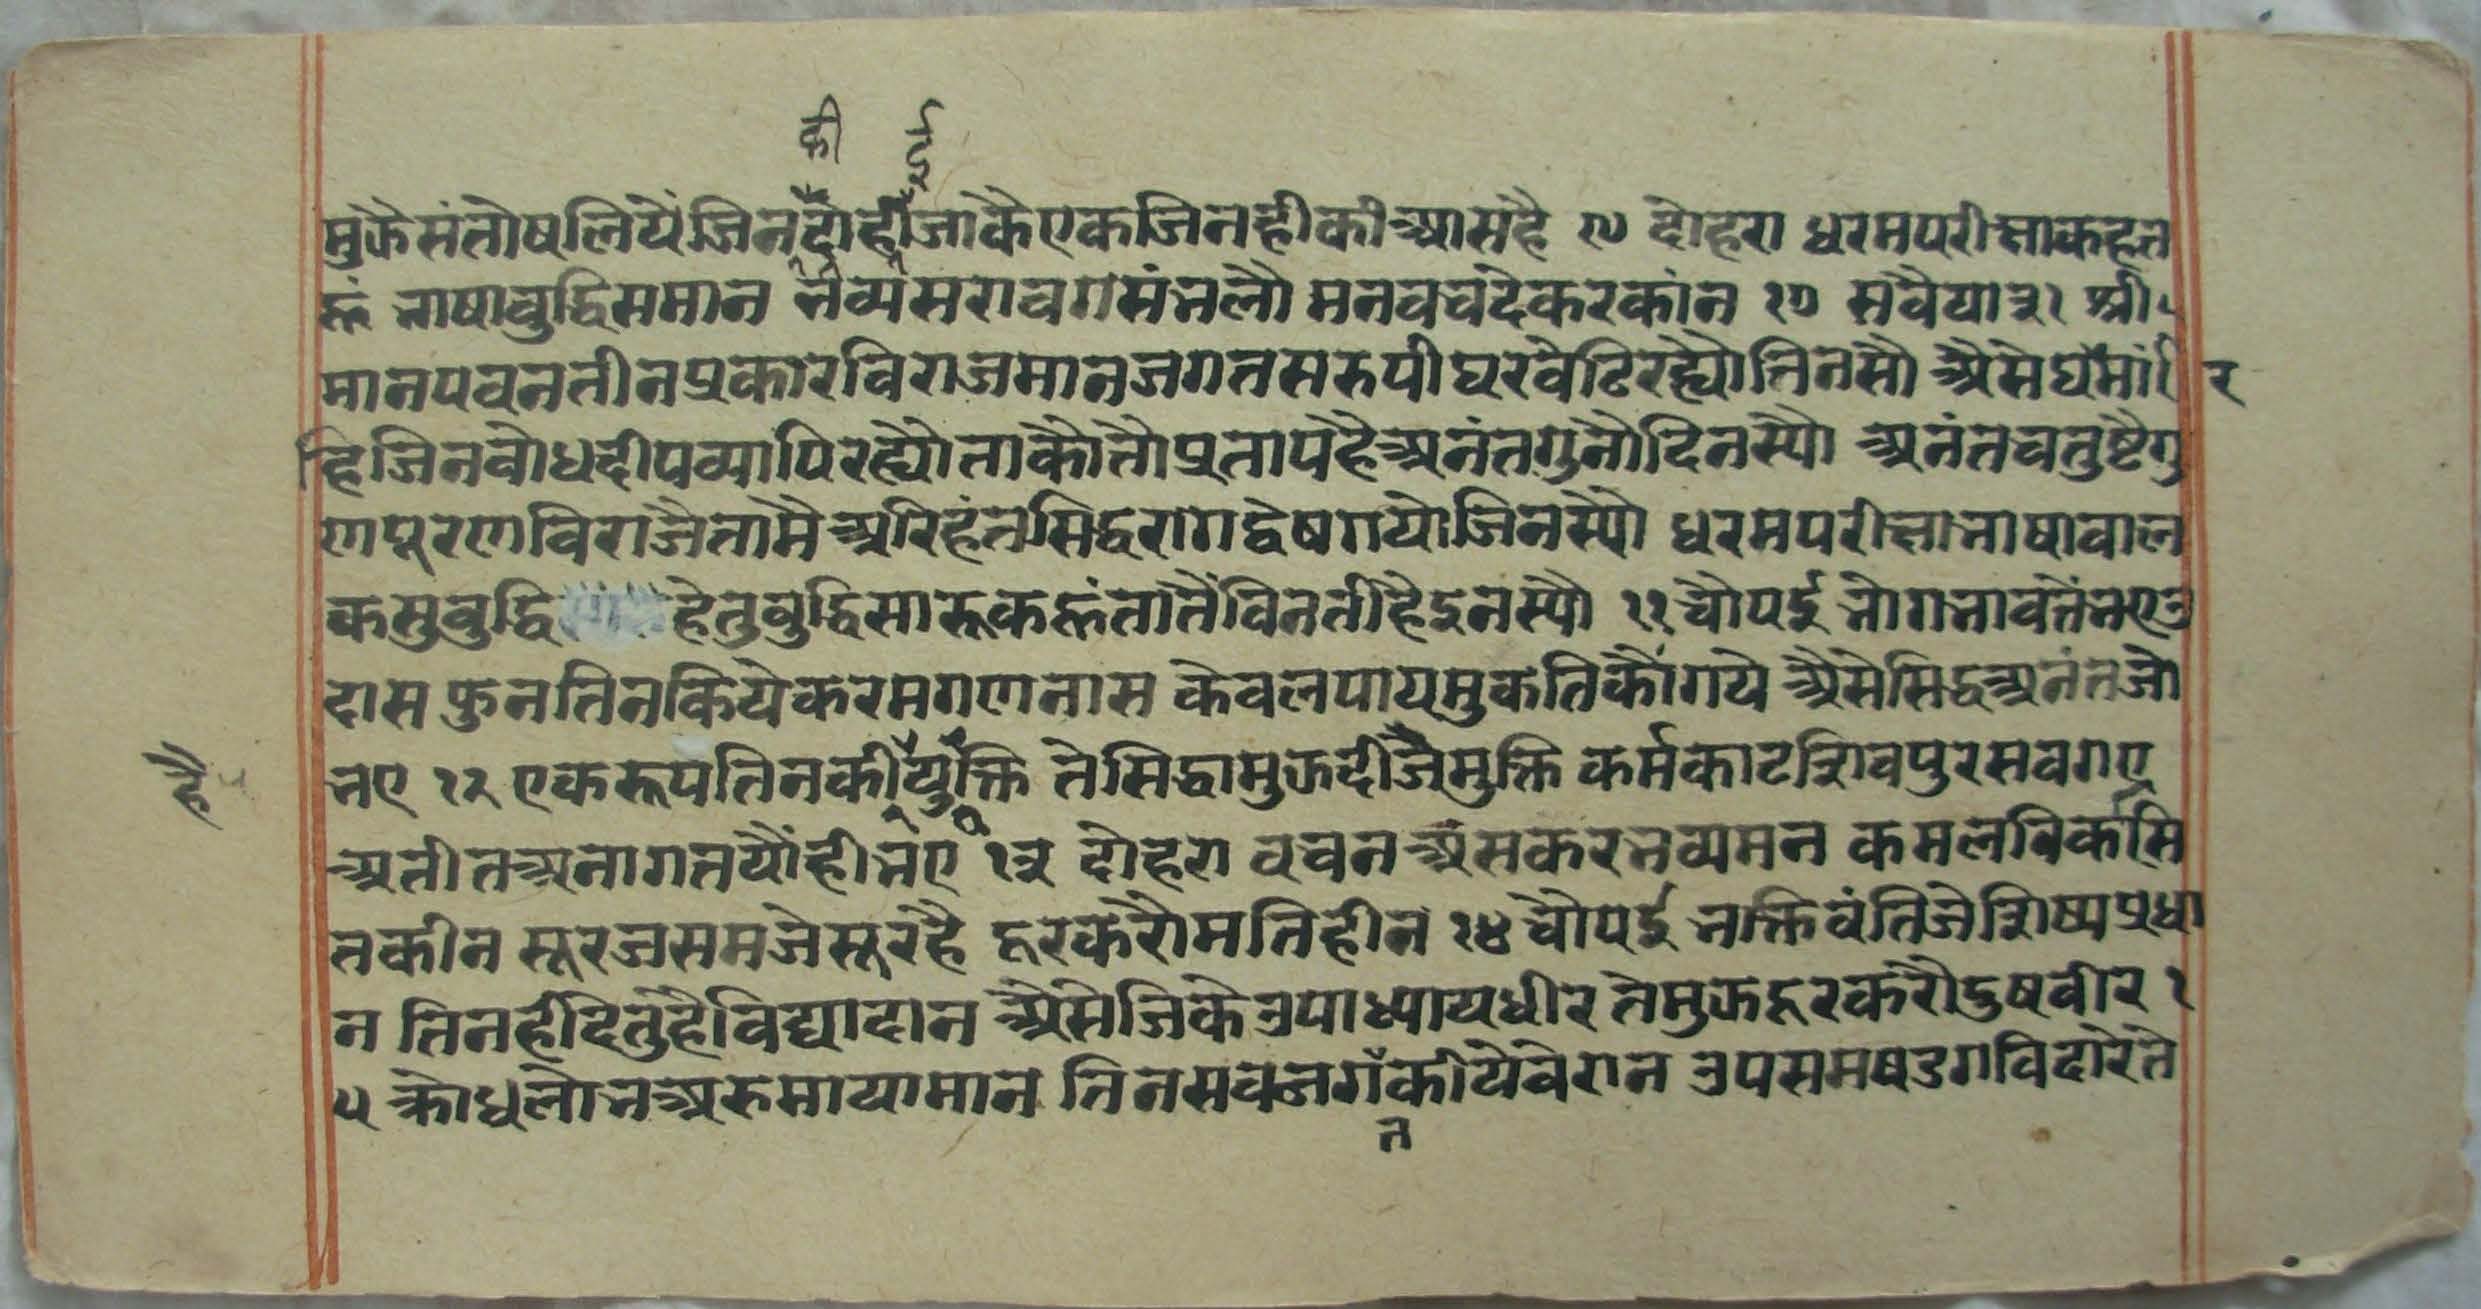 की ई
मुझै संतोष लियें जिन दो ही जाकै एक जिन ही की आस है ९ दोहरा धरम परीक्षा कहत
हूं भाषा बुद्धि समान भव्य सरावग संभलौ मन वच दे कर कांन १० सवैया ३१ श्री
मान पवन तीन प्रकार विराजमान जगत सरुपी घर वेढि रह्यो तिनसौ अैसे घर मां
हि जिन बोध दीप व्यापि रह्यो ताकौ तौ प्रताप है अनंत गुनौ दिनस्यौ अनंत चतुष्टै गु
ण पूरण विराजै तामै अरिहंत सिद्ध राग द्वेष गयो जिनस्यौ धरम परीक्षा भाषा बाल
क सुबुद्धि हेतु बुद्धि सारू कहूं तातैं विनती है इनस्यौ ११ चौपई भोग भावतैं भए उ
दास फुन तिन किये करम गण नास केवल पाय मुकति कौं गये अैसे सिद्ध अनंत जो
भए १२ एक रूप तिन की युक्ति ते सिद्धा मुझ दीजै मुक्ति कर्म काट शिवपुर सब गए
है
अतीत अनागत यौं ही भए १३ दोहरा वचन अंस कर भव्य मन कमल विकसि
त कीन सूरज सम जे सूर है दूर करौ मति हीन १४ चौपई भक्तिवंति जे शिष्य प्रधा
न तिनहीं दितु है विद्यादान अैसे जिके उपाध्याय धीर ते मुझ दूर करौ दुष वीर १
५ क्रोध लोभ अरु माया मान तिन सब जग कीये वेरान उपसम षडग विदारे ते
त